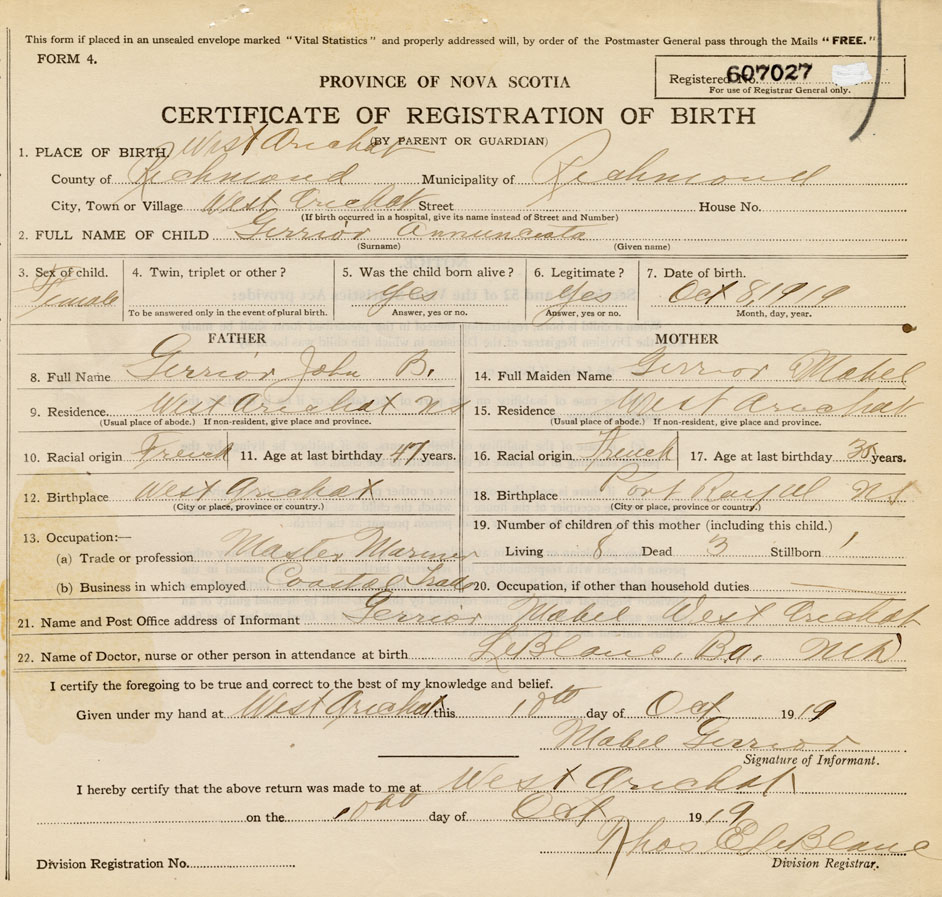 This form if placed in an unsealed envelope marked "Vital Statistics" and properly addressed will, by order of the Postmaster General pass through the Mails "FREE."
FORM 4.
Registered No. 607027
For use of Registrar General only.
PROVINCE OF NOVA SCOTIA
CERTIFICATE OF REGISTRATION OF BIRTH
(BY PARENT OR GUARDIAN)
1. PLACE OF BIRTH, West Arichat
County of Richmond Municipality of Richmond
City, Town or Village West Arichat Street House No.
(If birth occurred in a hospital, give its name instead of Street and Number)
2. FULL NAME OF CHILD Gerrior Annunciata
(Surname) (Given name)
3. Sex of child. 4. Twin, triplet or other? 5. Was the child born alive? 6. Legitimate? 7. Date of birth.
Female Yes Yes Oct 8, 1919
To be answered only in the event of plural birth. Answer, yes or no. Answer, yes or no. Month, day, year.
FATHER MOTHER
8. Full Name Gerrior John B. 14. Full Maiden Name Gerrior Mabel
9. Residence. West Arichat NS 15. Residence West Arichat
(Usual place of abode.) If non-resident, give place and province. (Usual place of abode.) If non-resident, give place and province.
10. Racial origin French 11. Age at last birthday 47 years. 16. Racial origin French 17. Age at last birthday years.
12. Birthplace West Arichat 18. Birthplace Port Royal NS
(City or place, province or country.) (City or place, province or country.)
19. Number of children of this mother (including this child.)
13. Occupation:—
(a) Trade or profession Master Mariner Living 8 Dead 3 Stillborn 1
(b) Business in which employed Coastal Trade 20. Occupation, if other than household duties
21. Name and Post Office address of Informant Gerrior Mabel West Arichat
22. Name of Doctor, nurse or other person in attendance at birth LeBlanc, MD
I certify the foregoing to be true and correct to the best of my knowledge and belief.
Given under my hand at West Arichat this 10th day of Oct 1919
Mabel Gerrior
Signature of Informant.
I hereby certify that the above return was made to me at West Arichat
on the 10th day of Oct 1919
Thos E LeBlanc
Division Registration No. Division Registrar.